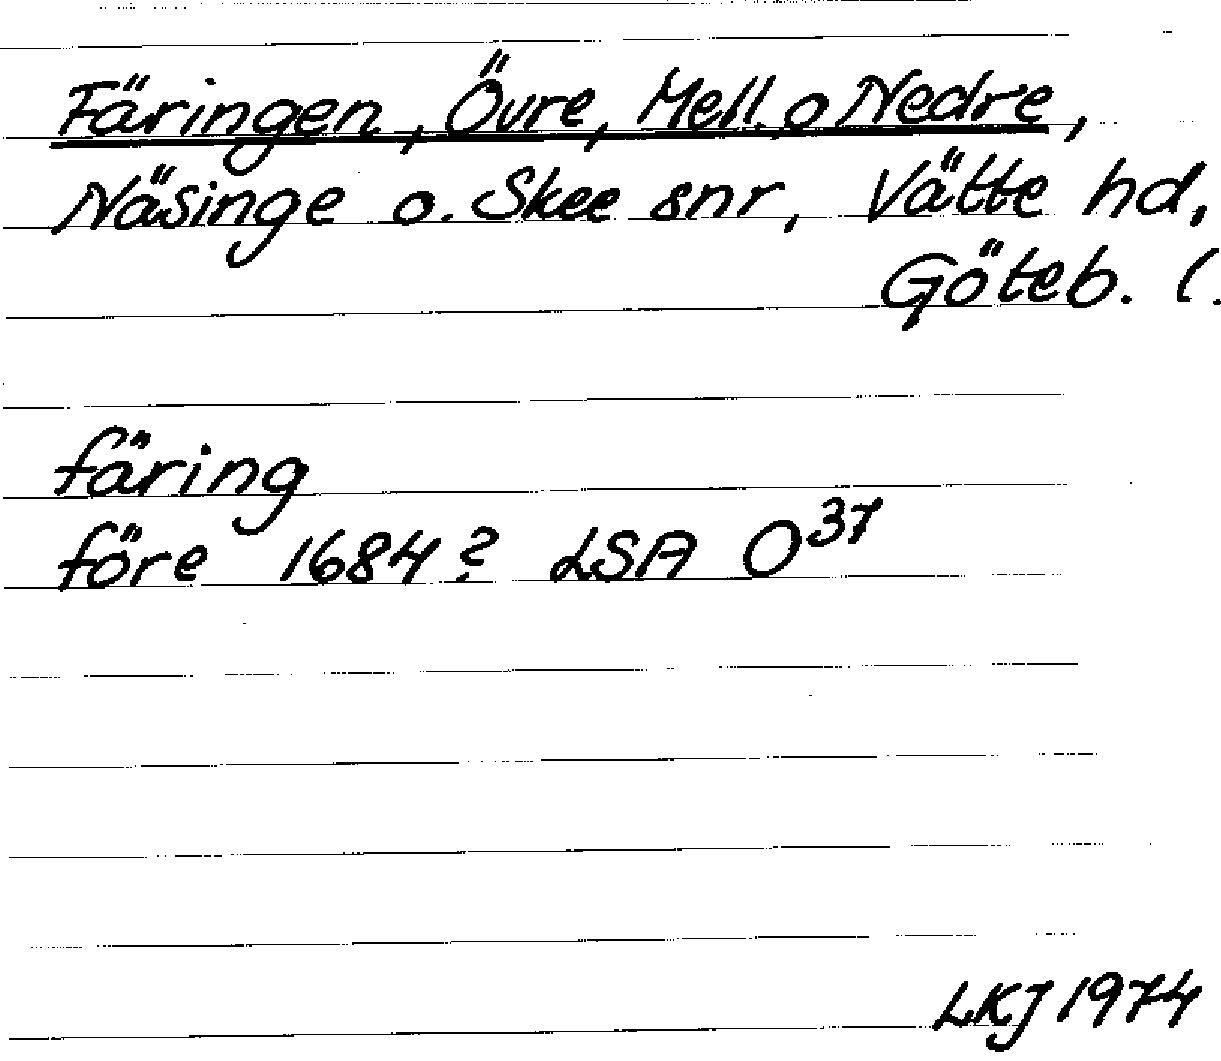 Färingen, Övre, Mell. o Nedre,
Näsinge o. Skee snr, Vätte hd,
Göteb. l.
färing
före 1684? LSA O37
LKJ 1974